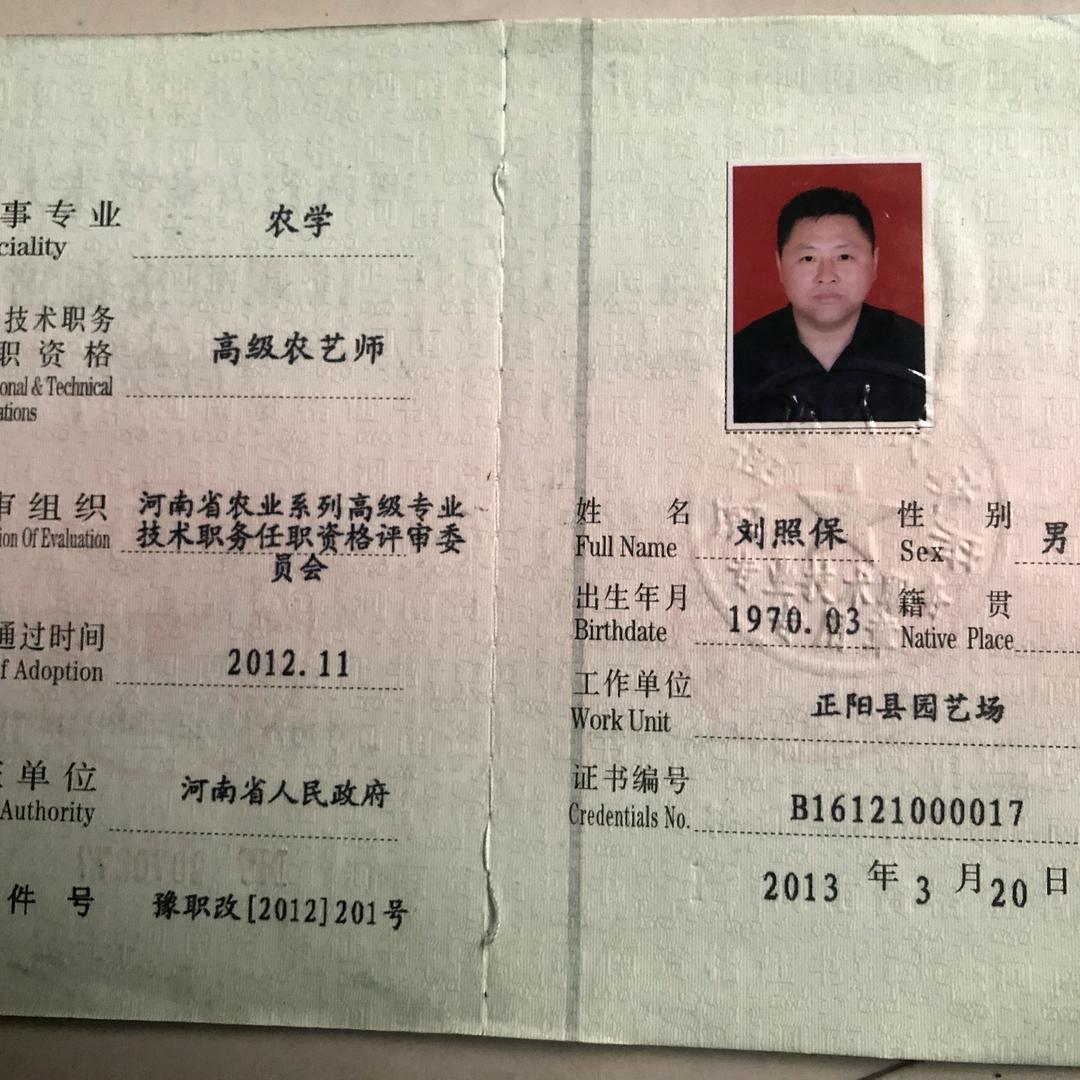 事专业 农学
ciality
技术职务
职资格 高级农艺师
onal & Technical
ations
审组织 河南省农业系列高级专业
技术职务任职资格评审委
员会
ion Of Evaluation
通过时间 2012.11
f Adoption
单位 河南省人民政府
Authority
件号 豫职改[2012]201号
姓名 刘照保 性别 男
Full Name Sex
出生年月 1970.03 籍贯
Birthdate Native Place
工作单位 正阳县园艺场
Work Unit
证书编号 B16121000017
Credentials No.
2013 年 3 月 20 日